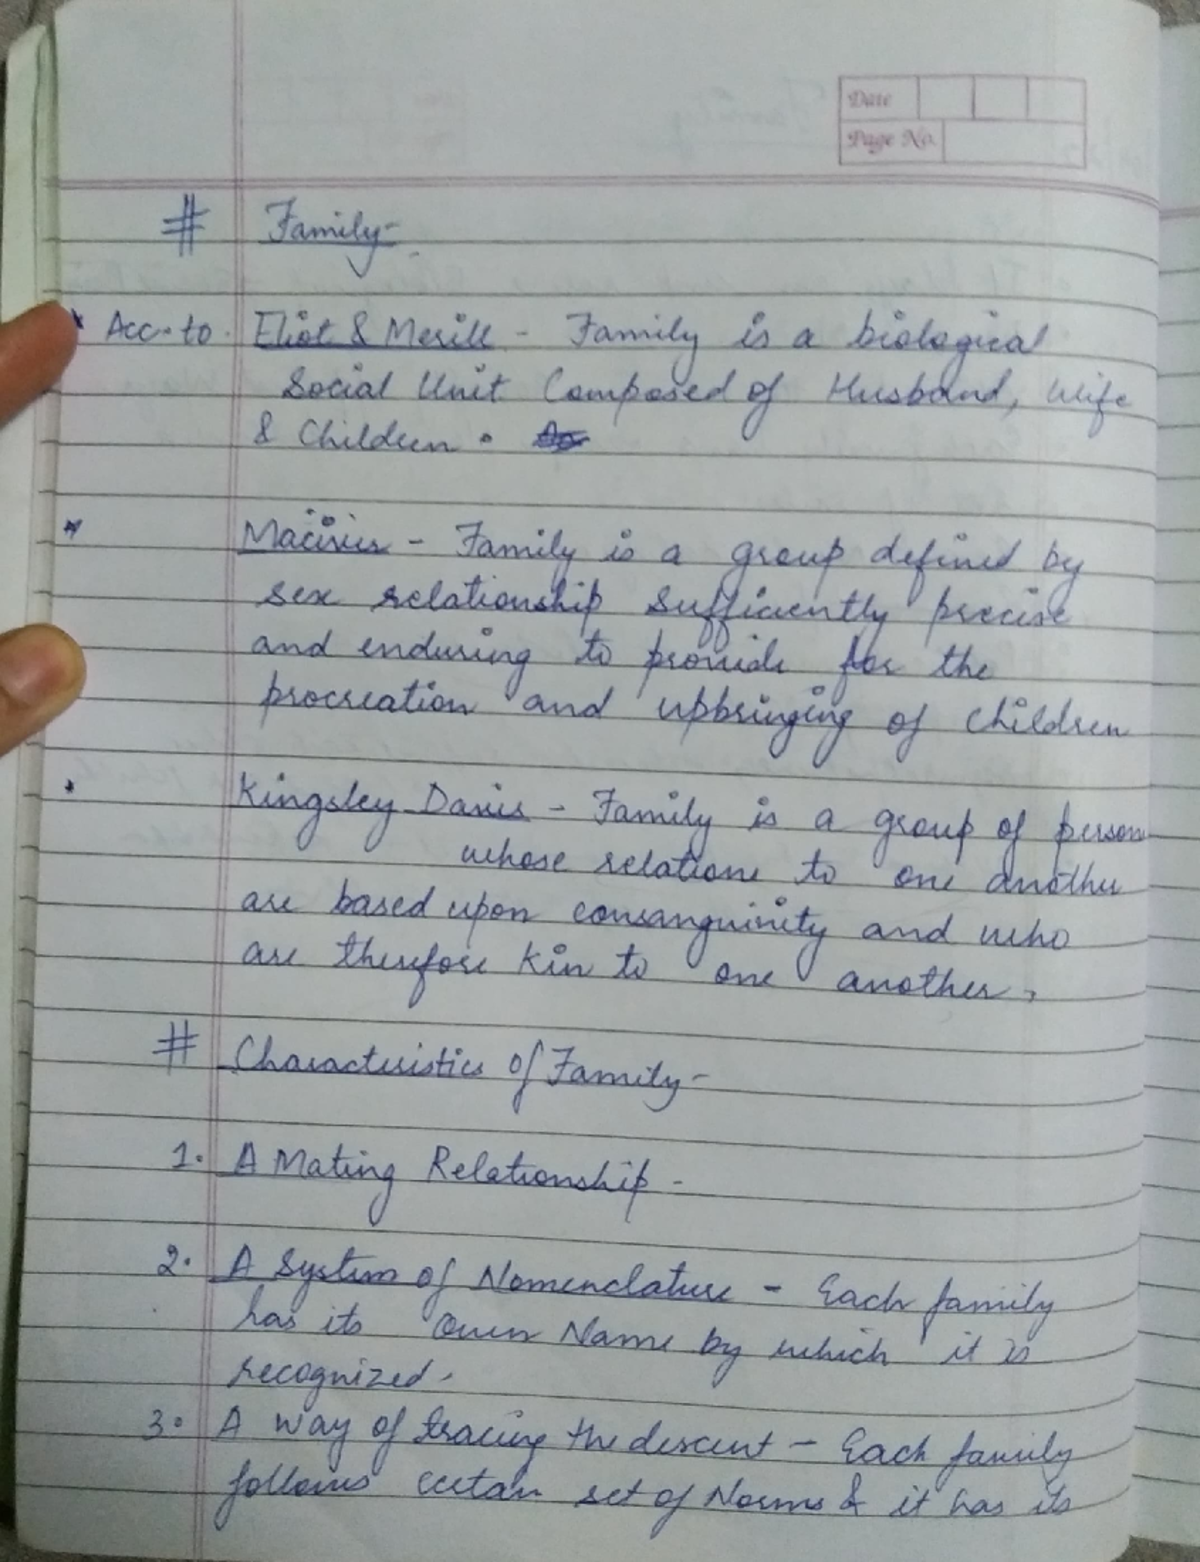 Date
Page No.
# Family-
* Acc. to. Eliot & Merill - Family is a biological
Social Unit Composed of Husband, Wife
& Children.
* Maciver - Family is a group defined by
sex relationship sufficiently precise
and enduring to provide for the
procreation and upbringing of children
Kingsley Davis - Family is a group of person
whose relations to one another
are based upon consanguinity and who
are therefore kin to one another.
# Characteristics of Family-
1. A Mating Relationship -
2. A System of Nomenclature - Each family
has its own Name by which it is
recognized.
3. A way of tracing the descent - Each family
follows certain set of Norms & it has its